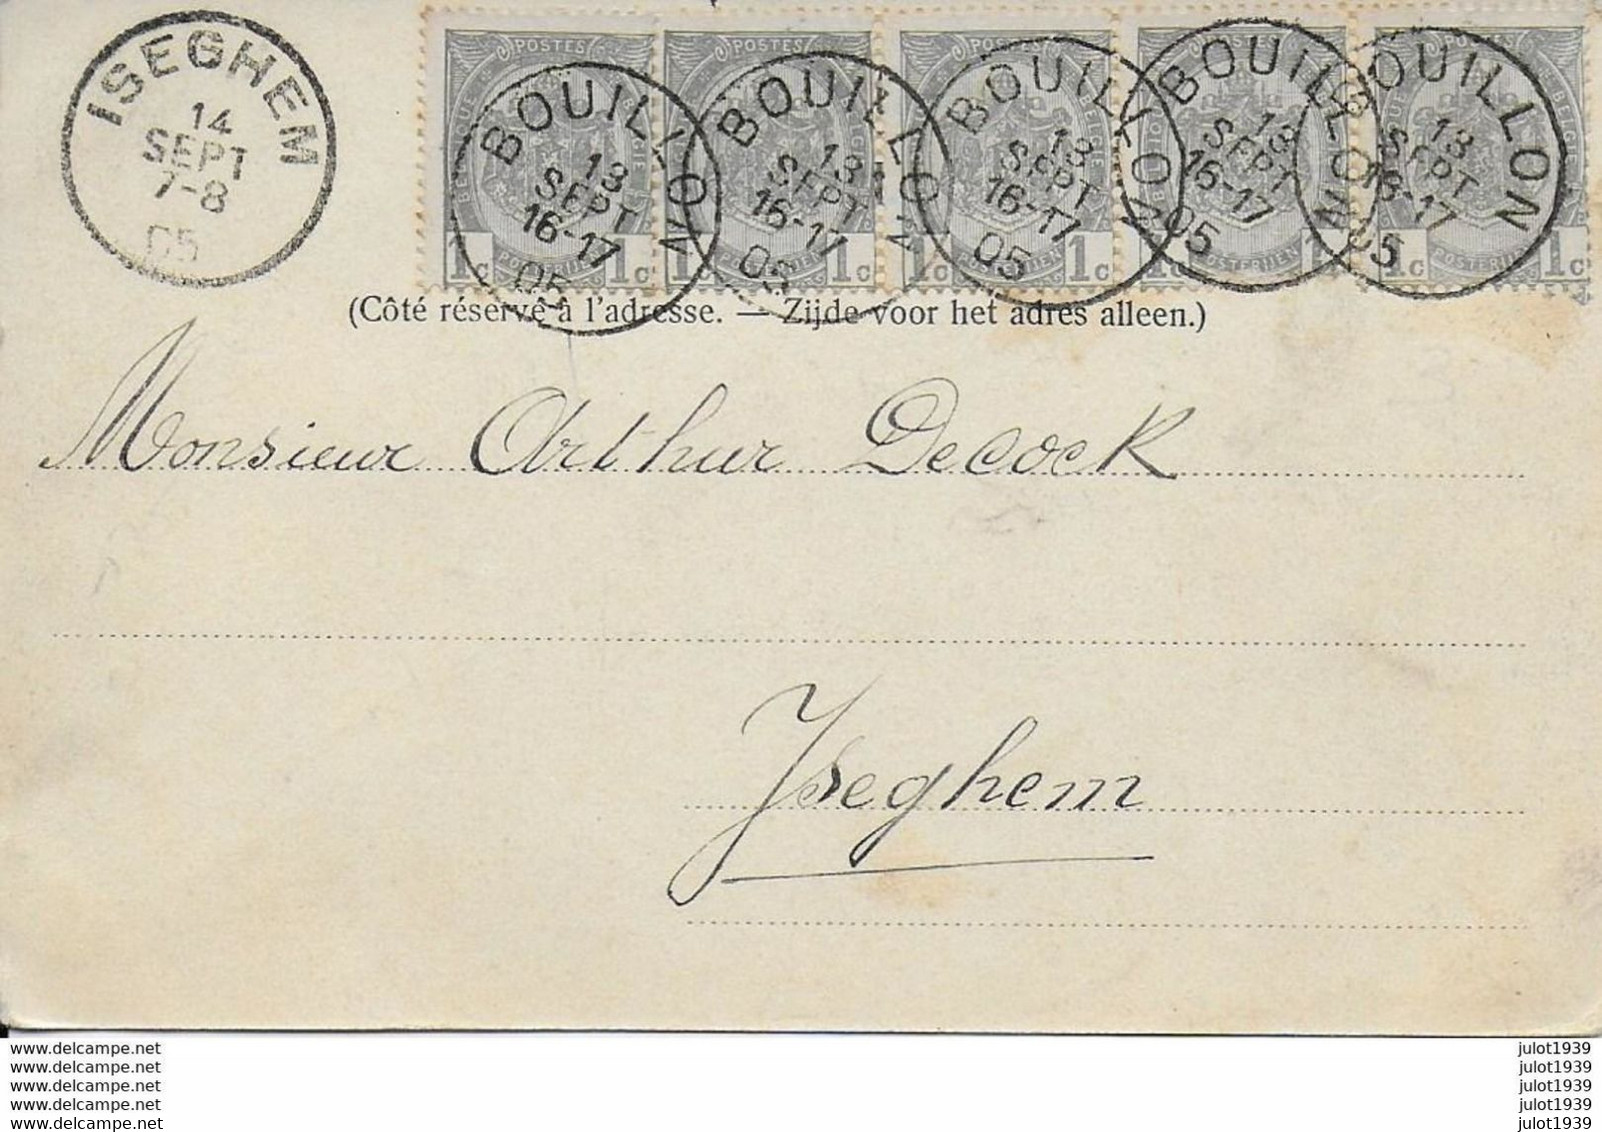 ISEGHEM
14
SEPT
7-8
05
POSTES POSTES POSTES POSTES
BOUILLON BOUILLON BOUILLON BOUILLON BOUILLON
13 13 13 13 13
SEPT SEPT SEPT SEPT SEPT
16-17 16-17 16-17 16-17 16-17
05 05 05 05 05
1c 1c 1c 1c 1c 1c 1c 1c
(Côté réservé à l'adresse. — Zijde voor het adres alleen.)
Monsieur Arthur Decock
Iseghem
www.delcampe.net julot1939
www.delcampe.net julot1939
www.delcampe.net julot1939
www.delcampe.net julot1939
www.delcampe.net julot1939